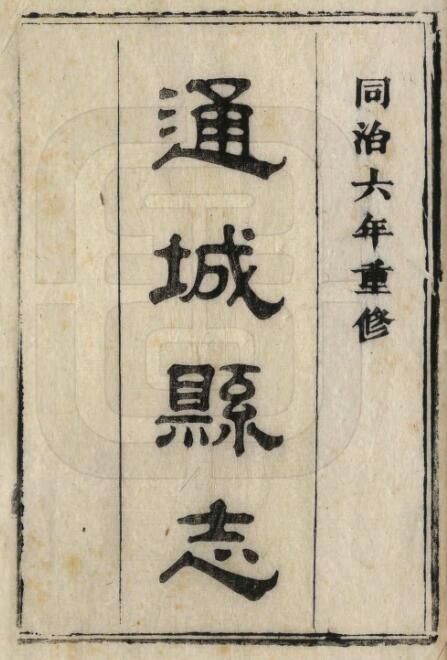 同治六年重修
通城縣志